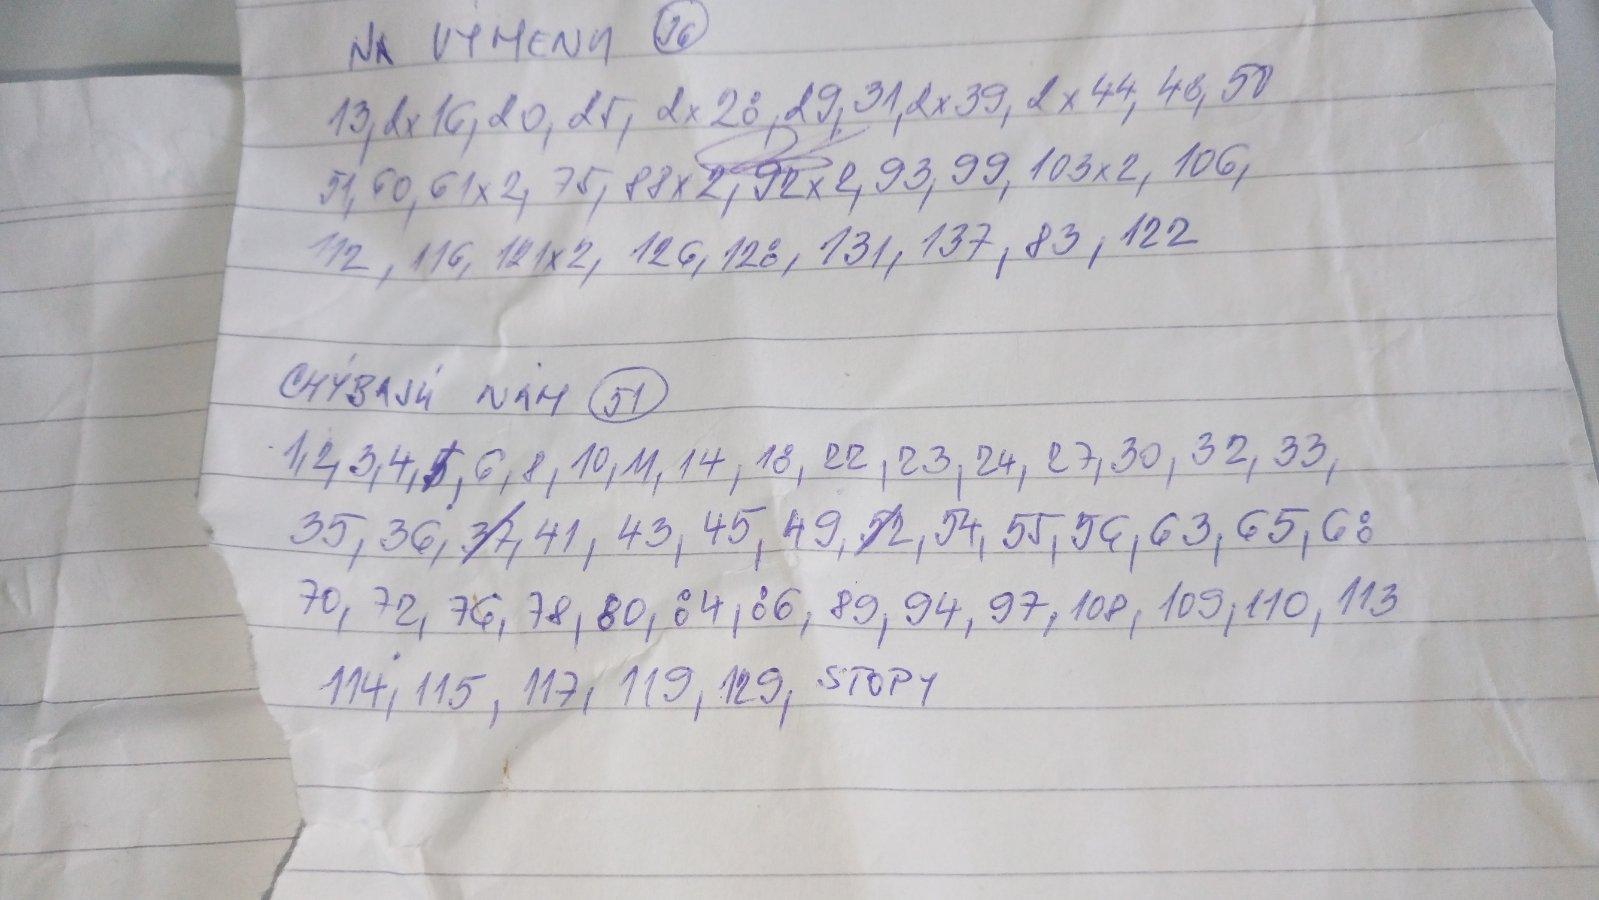 NA VÝMENU 36
13, 2x16, 20, 25, 2x28, 29, 31, 2x39, 2x44, 48, 50
51, 60, 61x2, 75, 88x2, 92x2, 93, 99, 103x2, 106,
112, 116, 121x2, 126, 128, 131, 137, 83, 122
CHÝBAJÚ NÁM 51
1, 2, 3, 4, 5, 6, 8, 10, 11, 14, 18, 22, 23, 24, 27, 30, 32, 33,
35, 36, 37, 41, 43, 45, 49, 52, 54, 55, 56, 63, 65, 68
70, 72, 76, 78, 80, 84, 86, 89, 94, 97, 108, 109, 110, 113
114, 115, 117, 119, 129, STOPY